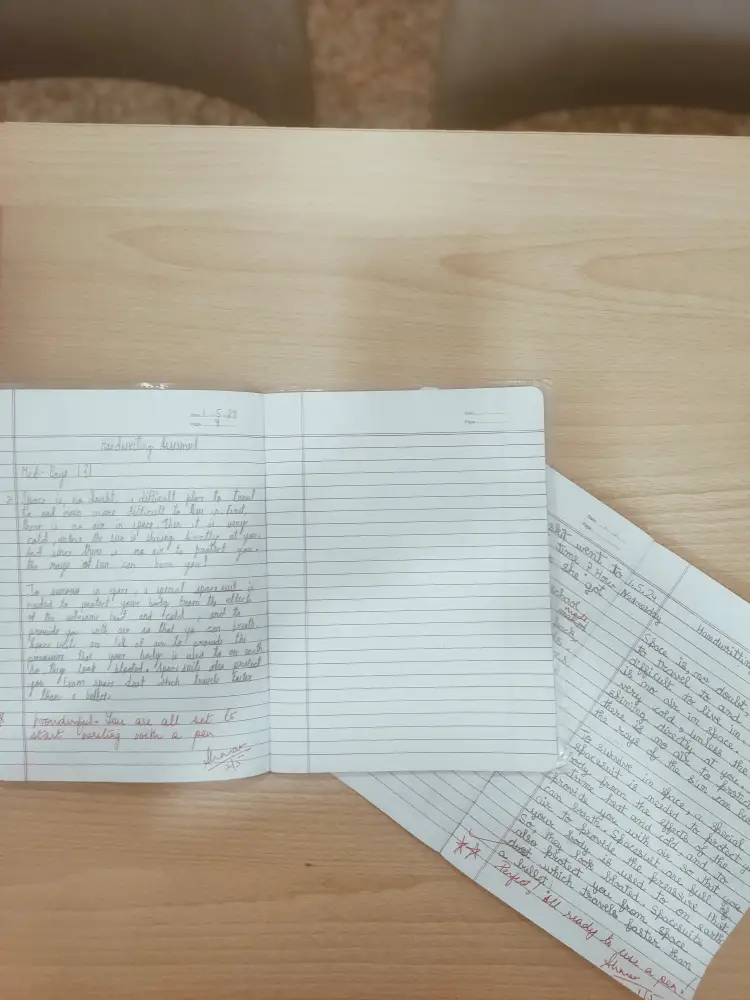 1.5.24
9
Handwriting Assessment
Space is, no doubt, a difficult place to travel
to and even more difficult to live in. First,
there is no air in space. Then it is very
cold, unless the sun is shining directly at you.
And since there is no air to protect you,
the rays of sun can burn you!
To survive in space, a special spacesuit is
needed to protect your body from the effects
of the extreme heat and cold, and to
provide you with air so that you can breath.
Spacesuits are full of air to provide the
pressure that your body is used to on earth.
So they look bloated. Spacesuits also protect
you from space dust which travels faster
than a bullet.
Wonderful. You are all set to
start writing with a pen
went to
time ?
she got
1.5.24
Wednesday
Handwriting
Space is, no doubt
to travel to and
difficult to live in
is no air in space.
very cold, unless the
shining directly at you
there is no air to protect
the rays of the sun can
To survive in space, a special
spacesuit is needed to protect
body from the effects of the
extreme heat and cold and to
provide you with air so that you
can breath. Spacesuit are full of
air to provide the pressure that
your body is used to on earth.
So, they look bloated. Spacesuits
also protect you from space
dust which travels faster than
a bullet!
Perfect, all ready to use a pen.